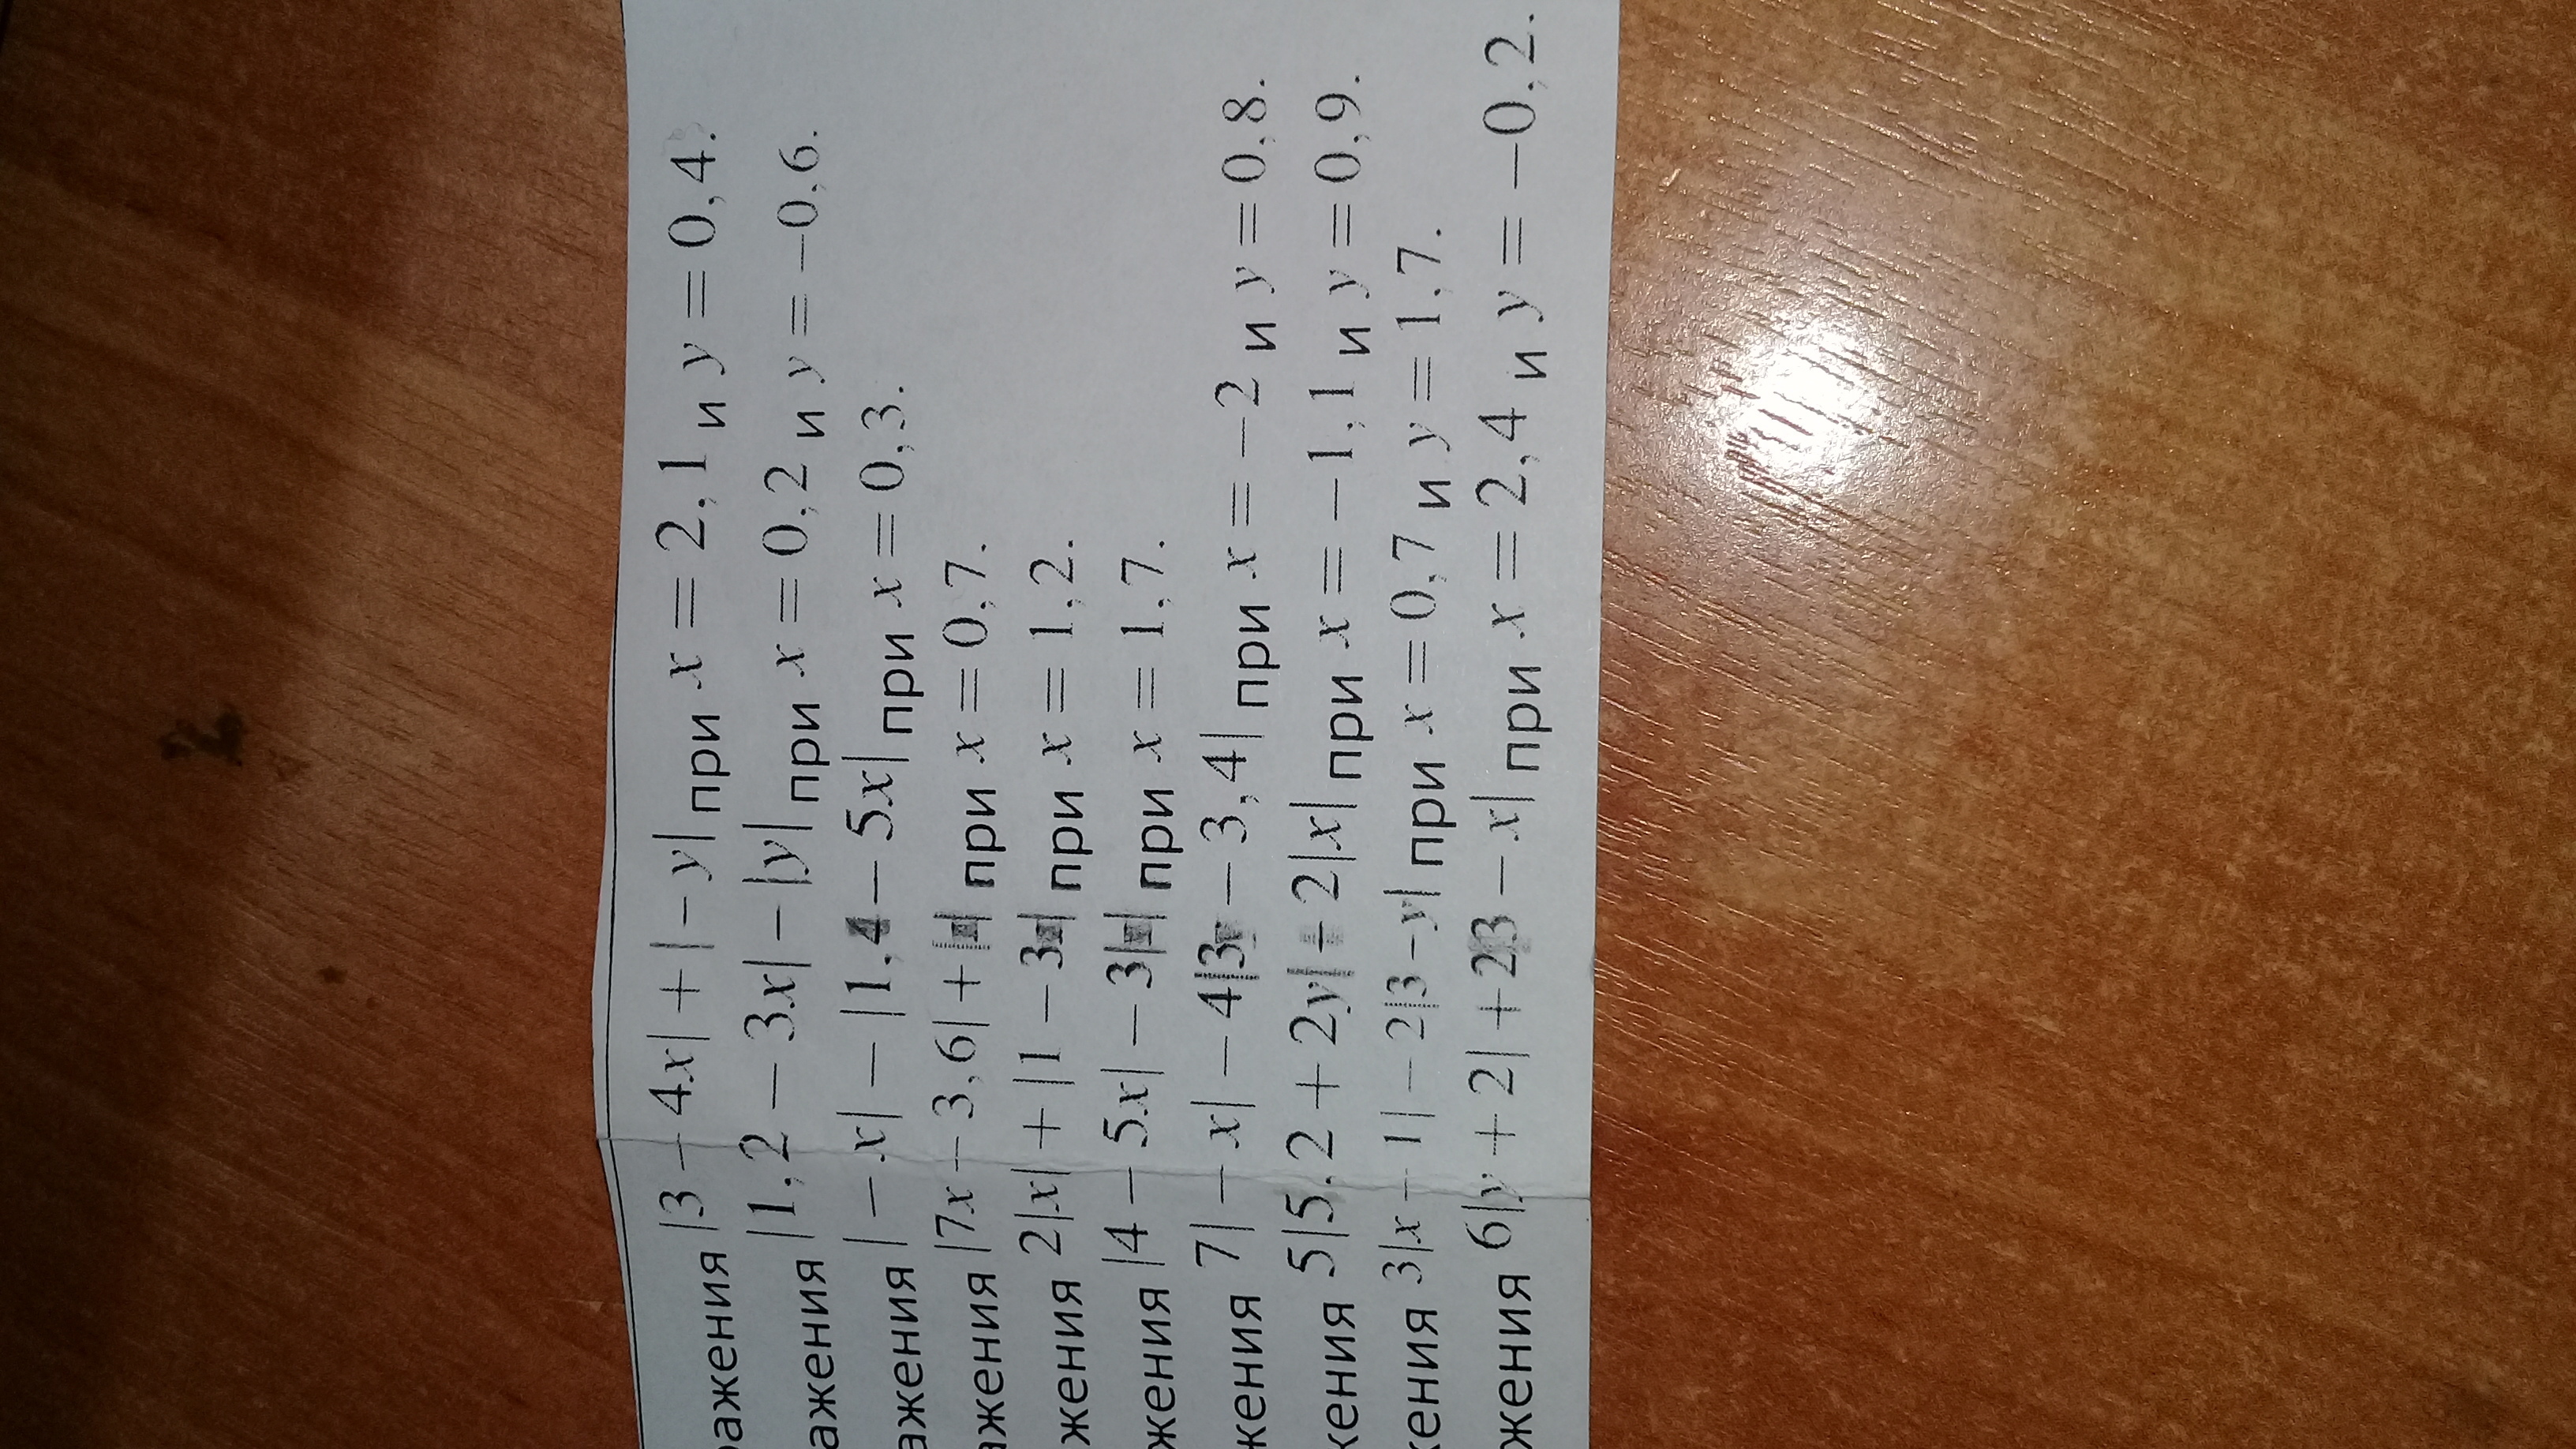 ражения |3 − 4x| + |−y| при x = 2,1 и y = 0,4.
ажения |1,2 − 3x| − |y| при x = 0,2 и y = −0,6.
ажения |−x| − |1,4 − 5x| при x = 0,3.
ажения |7x − 3,6| + при x = 0,7.
жения 2|x| + |1 − 3x| при x = 1,2.
жения |4 − 5x| − 3|x| при x = 1,7.
жения 7|−x| − 4|3x − 3,4| при x = −2 и y = 0,8.
жения 5|5,2 + 2y| − 2|x| при x = −1,1 и y = 0,9.
жения 3|x − 1| − 2|3 − y| при x = 0,7 и y = 1,7.
жения 6|y + 2| + 2|3 − x| при x = 2,4 и y = −0,2.